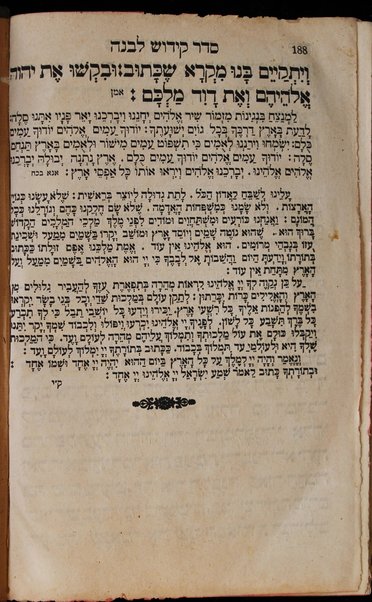 188
סדר קידוש לבנה
וְיִתְקַיֵּים בָּנוּ מִקְרָא שֶׁכָּתוּב: וּבִקְשׁוּ אֶת יהוה
אֱלֹהֵיהֶם וְאֶת דָּוִד מַלְכָּם: אמן
לַמְנַצֵּחַ בִּנְגִינוֹת מִזְמוֹר שִׁיר אֱלֹהִים יְחָנֵּנוּ וִיבָרְכֵנוּ יָאֵר פָּנָיו אִתָּנוּ סֶלָה:
לָדַעַת בָּאָרֶץ דַּרְכֶּךָ בְּכָל גּוֹיִם יְשׁוּעָתֶךָ: יוֹדוּךָ עַמִּים אֱלֹהִים יוֹדוּךָ עַמִּים
כֻּלָּם: יִשְׂמְחוּ וִירַנְּנוּ לְאֻמִּים כִּי תִשְׁפּוֹט עַמִּים מִישׁוֹר וּלְאֻמִּים בָּאָרֶץ תַּנְחֵם
סֶלָה: יוֹדוּךָ עַמִּים אֱלֹהִים יוֹדוּךָ עַמִּים כֻּלָּם. אֶרֶץ נָתְנָה יְבוּלָהּ יְבָרְכֵנוּ
אֱלֹהִים אֱלֹהֵינוּ: יְבָרְכֵנוּ אֱלֹהִים וְיִרְאוּ אוֹתוֹ כָּל אַפְסֵי אָרֶץ: אנא בכח
עָלֵינוּ לְשַׁבֵּחַ לַאֲדוֹן הַכֹּל. לָתֵת גְּדוּלָּה לְיוֹצֵר בְּרֵאשִׁית: שֶׁלֹּא עָשָׂנוּ כְּגוֹיֵי
הָאֲרָצוֹת. וְלֹא שָׂמָנוּ כְּמִשְׁפְּחוֹת הָאֲדָמָה. שֶׁלֹּא שָׂם חֶלְקֵנוּ כָּהֶם וְגוֹרָלֵנוּ כְּכָל
הֲמוֹנָם: וַאֲנַחְנוּ כּוֹרְעִים וּמִשְׁתַּחֲוִים וּמוֹדִים לִפְנֵי מֶלֶךְ מַלְכֵי הַמְּלָכִים הַקָּדוֹשׁ
בָּרוּךְ הוּא. שֶׁהוּא נוֹטֶה שָׁמַיִם וְיוֹסֵד אָרֶץ וּמוֹשַׁב יְקָרוֹ בַּשָּׁמַיִם מִמַּעַל וּשְׁכִינַת
עֻזּוֹ בְּגָבְהֵי מְרוֹמִים. הוּא אֱלֹהֵינוּ אֵין עוֹד. אֱמֶת מַלְכֵּנוּ אֶפֶס זוּלָתוֹ כַּכָּתוּב
בְּתוֹרָתוֹ וְיָדַעְתָּ הַיּוֹם וַהֲשֵׁבוֹתָ אֶל לְבָבֶךָ כִּי יְיָ הוּא הָאֱלֹהִים בַּשָּׁמַיִם מִמַּעַל וְעַל
הָאָרֶץ מִתָּחַת אֵין עוֹד:
עַל כֵּן נְקַוֶּה לְךָ יְיָ אֱלֹהֵינוּ לִרְאוֹת מְהֵרָה בְּתִפְאֶרֶת עֻזֶּךָ לְהַעֲבִיר גִּלּוּלִים מִן
הָאָרֶץ וְהָאֱלִילִים כָּרוֹת יִכָּרֵתוּן: לְתַקֵּן עוֹלָם בְּמַלְכוּת שַׁדַּי, וְכָל בְּנֵי בָשָׂר יִקְרְאוּ
בִשְׁמֶךָ לְהַפְנוֹת אֵלֶיךָ כָּל רִשְׁעֵי אָרֶץ. יַכִּירוּ וְיֵדְעוּ כָּל יוֹשְׁבֵי תֵבֵל כִּי לְךָ תִּכְרַע
כָּל בֶּרֶךְ תִּשָּׁבַע כָּל לָשׁוֹן. לְפָנֶיךָ יְיָ אֱלֹהֵינוּ יִכְרְעוּ וְיִפּוֹלוּ וְלִכְבוֹד שִׁמְךָ יְקָר יִתֵּנוּ
וִיקַבְּלוּ כוּלָּם אֶת עוֹל מַלְכוּתֶךָ וְתִמְלוֹךְ עֲלֵיהֶם מְהֵרָה לְעוֹלָם וָעֶד. כִּי הַמַּלְכוּת
שֶׁלְּךָ הִיא וּלְעוֹלְמֵי עַד תִּמְלוֹךְ בְּכָבוֹד. כַּכָּתוּב בְּתוֹרָתֶךָ יְיָ יִמְלוֹךְ לְעוֹלָם וָעֶד:
וְנֶאֱמַר וְהָיָה יְיָ לְמֶלֶךְ עַל כָּל הָאָרֶץ בַּיּוֹם הַהוּא יִהְיֶה יְיָ אֶחָד וּשְׁמוֹ אֶחָד:
וּבְתוֹרָתְךָ כָּתוּב לֵאמֹר שְׁמַע יִשְׂרָאֵל יְיָ אֱלֹהֵינוּ יְיָ אֶחָד:
ק״י